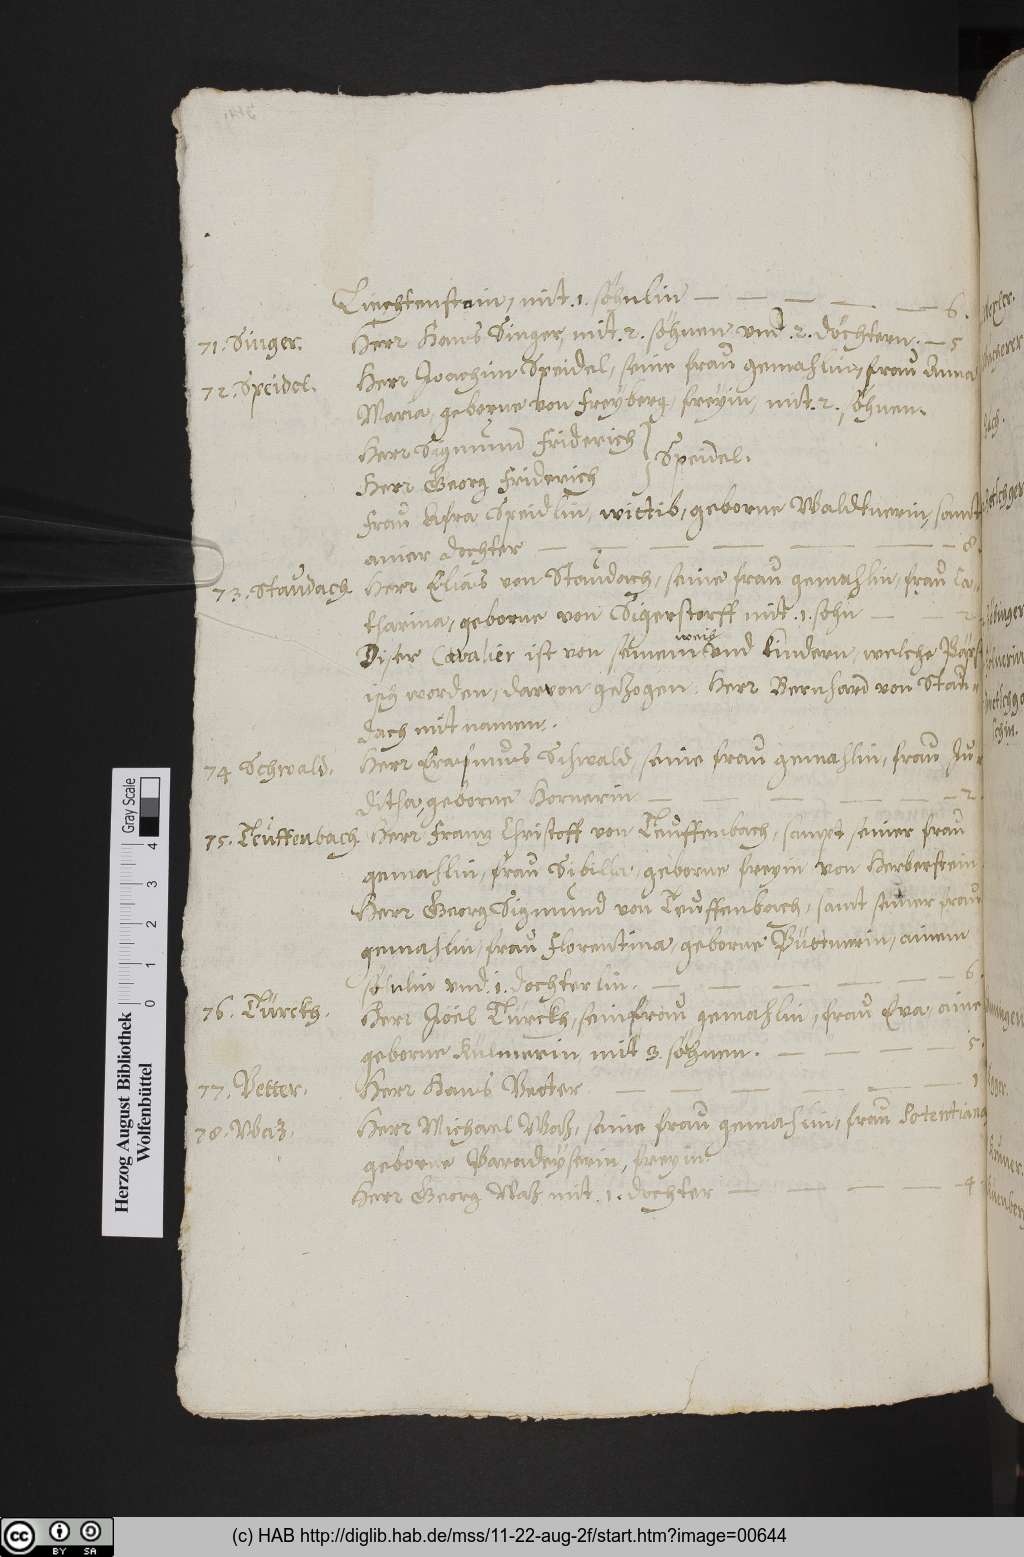 Liechtenstain, mit .1. söhnlin — — — — — 6.
71. Singer. Herr Hans Singer, mit .2. söhnen vnd .2. döchtern. — 5
72. Speidel. Herr Joachim Speidel, seine frau gemahlin, frau Anna
Maria, geborne von Freyberg, freyin, mit .2. söhnen.
Herr Sigmund Friderich } Speidel.
Herr Georg Friderich
Frau Afra Speidlin, wittib, geborne Waldtnerin, samt
ainer dochter — — — — — — 8.
73. Staudach Herr Elias von Staudach, seine frau gemahlin, frau Ca-
tharina, geborne von Sigerstorff mit .1. sohn — — 2
Diser Cavalier ist von seinem weib vnd kindern, welche Päpst-
isch worden, darvon gezogen. Herr Bernhard von Stau-
dach mit namen.
74 Schwald. Herr Erasmus Schwald, seine frau gemahlin, frau Ju-
ditha, geborne Hornerin — — — — — 2.
75. Teuffenbach Herr Franz Christoff von Teuffenbach, sampt seiner frau
gemahlin, frau Sibilla, geborne freyin von Herberstein
Herr Georg Sigmund von Teuffenbach, samt seiner frau
gemahlin, frau Florentina, geborne Püttnerin, ainem
söhnlin vnd .1. döchterlin. — — — — — 6.
76. Türckh. Herr Joël Türckh, sein frau gemahlin, frau Eva, aine
geborne Külmerin, mit 3. söhnen. — — — — 5.
77. Vetter. Herr Hans Vetter — — — — — 1
78. Waz. Herr Michael Waz, seine frau gemahlin, frau Potentiana
geborne Paradeyserin, freyin.
Herr Georg Waz mit .1. dochter — — — — 4
Herzog August Bibliothek
Wolfenbüttel
Gray Scale
0 1 2 3 4
(c) HAB http://diglib.hab.de/mss/11-22-aug-2f/start.htm?image=00644
cc BY SA